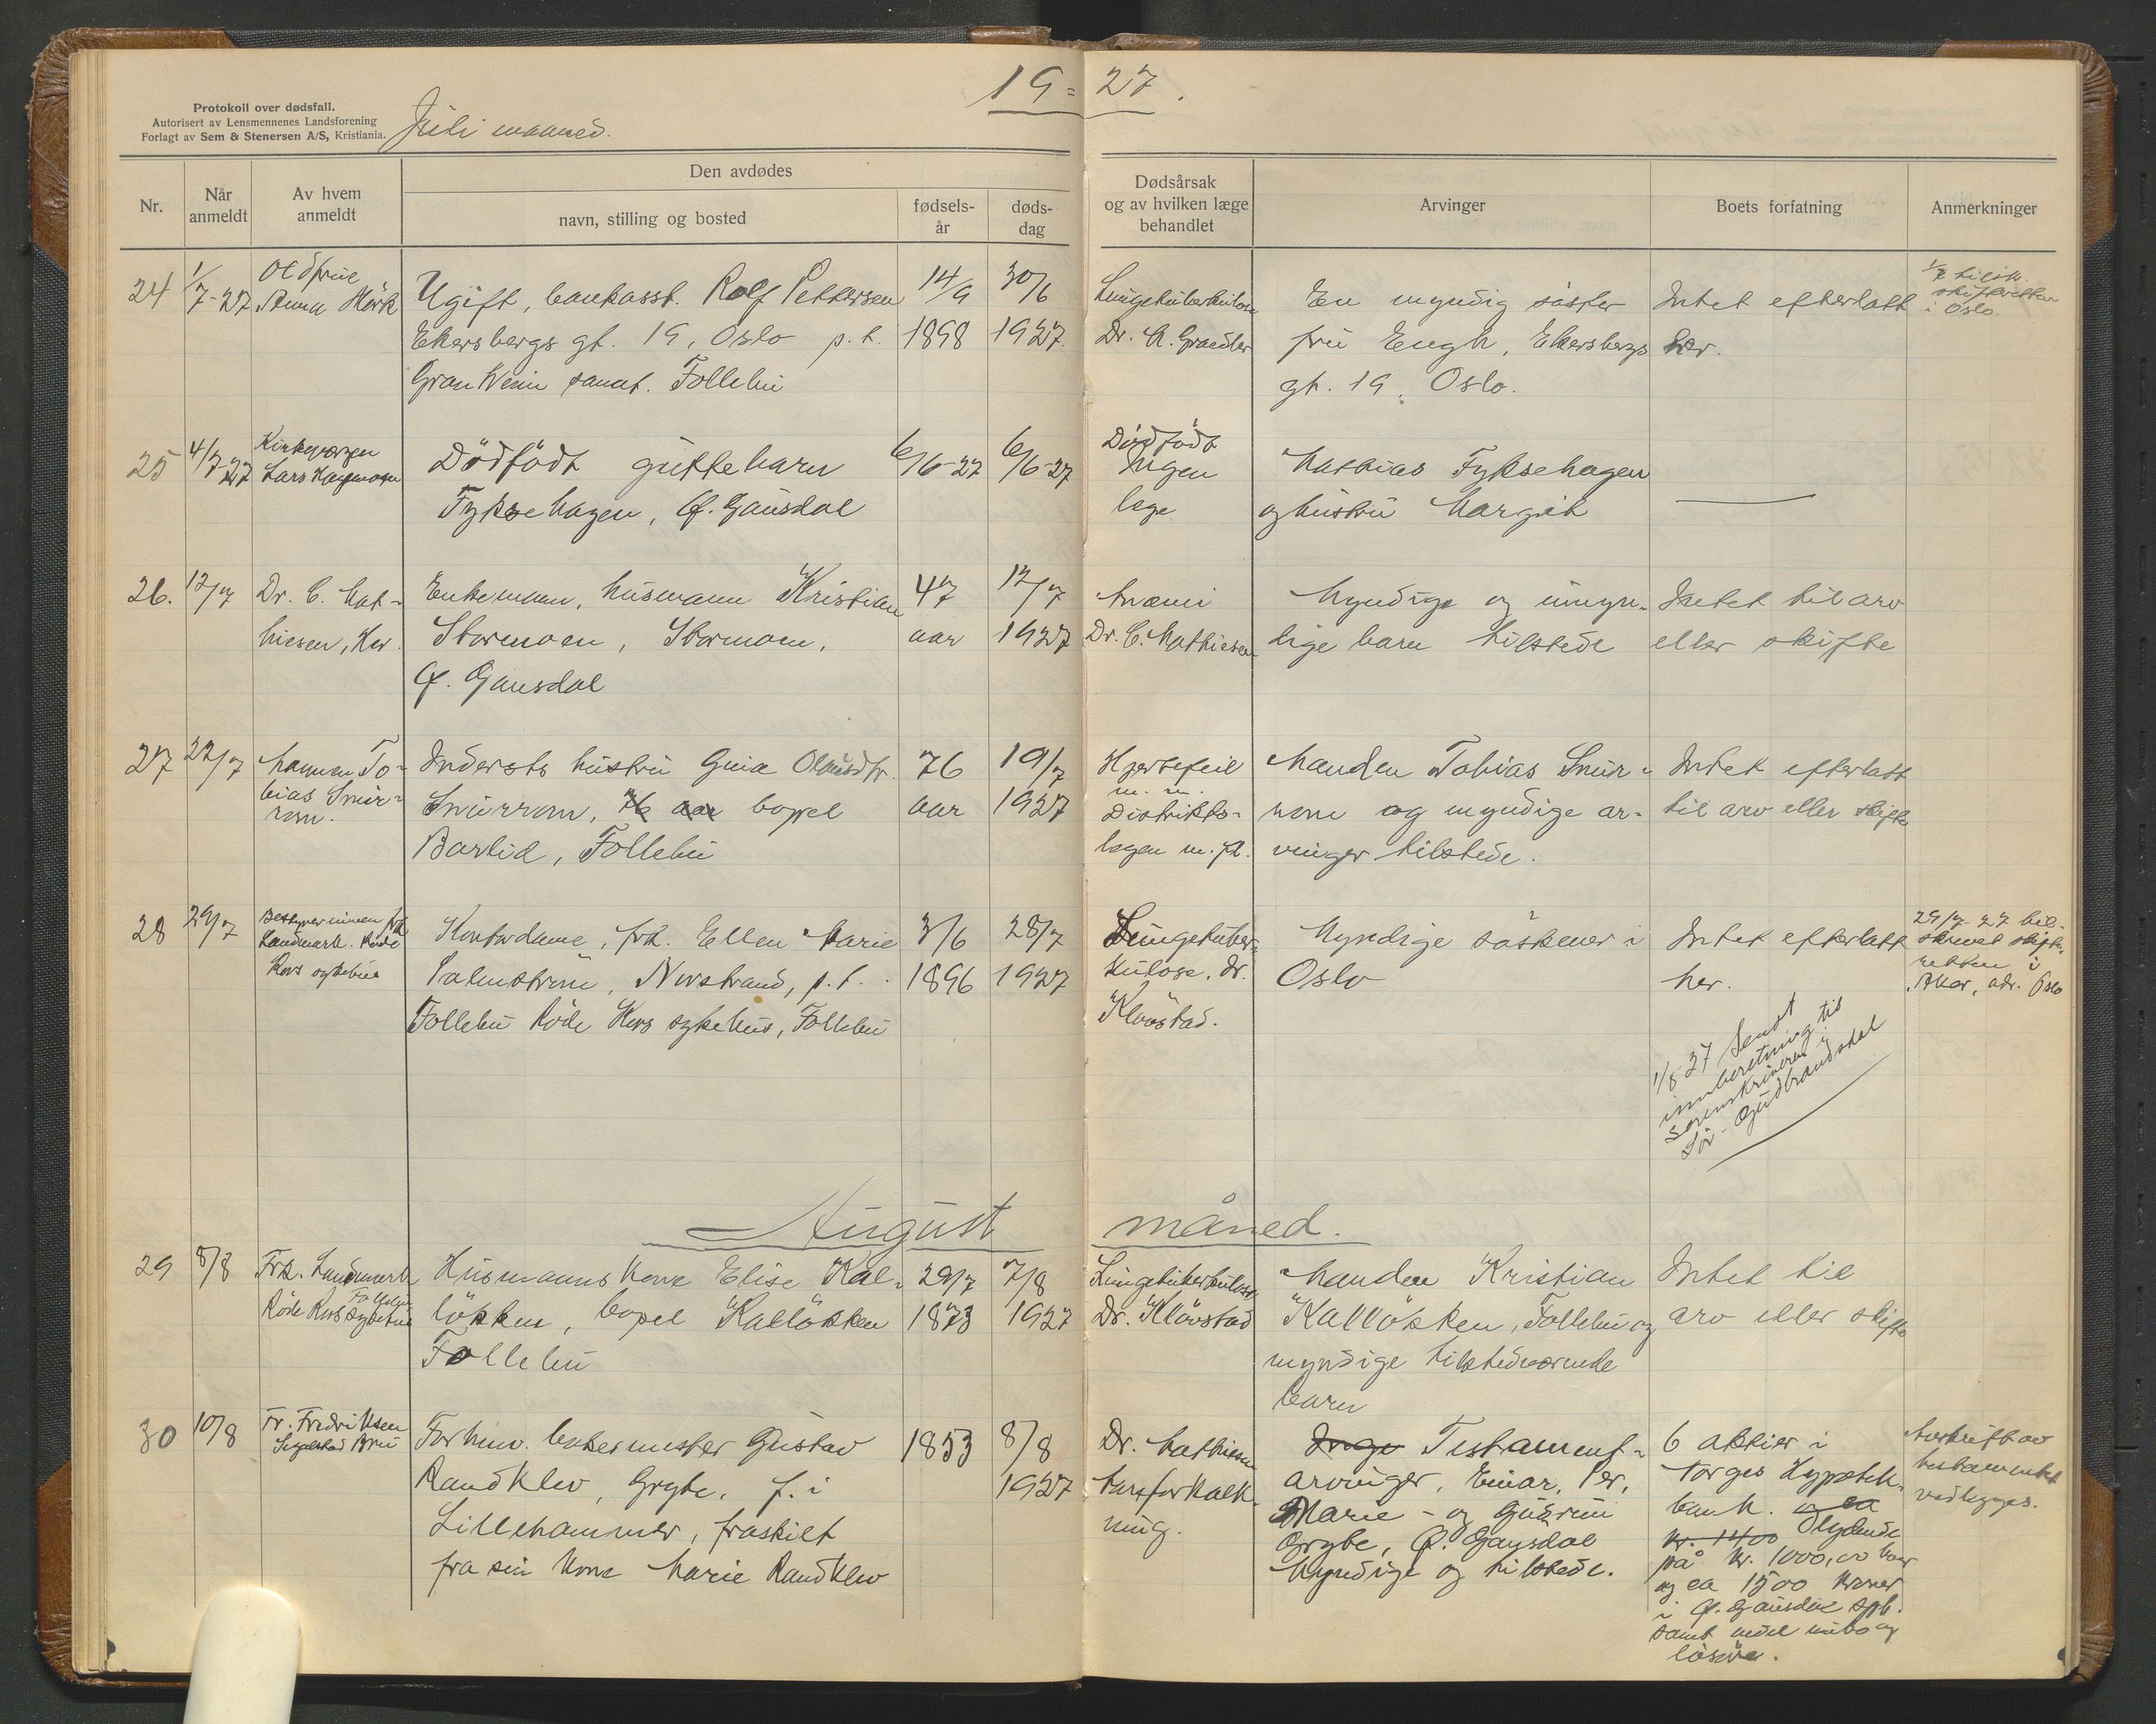 19 - 27.
Protokoll over dødsfall.
Autorisert av Lensmennenes Landsforening
Forlagt av Sem & Stenersen A/S, Kristiania.
Juli maaned.
Nr.
Når anmeldt
Av hvem anmeldt
Den avdødes
navn, stilling og bosted
fødsels-år
døds-dag
Dødsårsak
og av hvilken læge
behandlet
Arvinger
Boets forfatning
Anmerkninger
24
1/7-27
Oldfrue
Anna Hörk
Ugift, bankasst. Rolf Pettersen
Ekersbergs gt. 19, Oslo p.t.
Granheim sanat. Follebu
14/9
1898
30/6
1927.
Lungetuberkulose
Dr. A. Graedler
En myndig söster
fru Engh, Ekersbergs
gt. 19, Oslo.
Intet efterlatt
her.
skifteretten
i Oslo.
25
4/7-27
Kirkevergen
Lars
Dödfödt guttebarn
Fyksehagen, Ö. Gausdal
6/6-27
6/6-27
Dödfödt
Ingen
lege
Mathias Fyksehagen
og hustru Margit
26.
12/7
Dr. C. Mat-
hiesen, her.
Enkemann, husmann Kristian
Stormoen, Stormoen,
Ö. Gausdal
47
aar
12/7
1927
Anæmi
Dr. C. Mathiesen
Myndige og umyn-
dige barn tilstede
Intet til arv
eller skifte
27
22/7
Mannen To-
bias Snur-
rom.
Indersts hustru Guia Olausdtr.
Snurrom, 76 aar bopel
Barlid, Follebu
76
aar
19/7
1927
Hjertefeil
m. m.
Distrikts-
legen m. fl.
Manden Tobias Snur-
rom og myndige ar-
vinger tilstede.
Intet efterlatt
til arv eller skifte
28
29/7
Bestyrerinnen frk.
Landmark. Röde
Kors sykehus
Kontordame, frk. Ellen Marie
Palmström, Norstrand, p.t.
Follebu Röde Kors sykehus, Follebu
3/6
1896
28/7
1927
Lungetuber-
kulose, dr.
Klövstad.
Myndige söskener i
Oslo
Intet efterlatt
her.
29/7-27 til-
skrevet skifte-
retten i
Aker, adr. Oslo
1/8-27 Sendt
innberetning til
sorenskriveren i
Sör-Gudbrandsdal
August måned.
29
8/8
Frk. Landmark
Follebu
Röde Kors sykehus
Husmannskone Elise Kal-
lökken, bopel Kallökken
Follebu
29/7
1873
7/8
1927
Lungetuberkulose
Dr. Klövstad
Manden Kristian
Kallökken, Follebu og
myndige tilstedeværende
barn
Intet til
arv eller skifte
30
10/8
Fr. Fredriksen
Segalstad Bru
Forhenv. bakermester Gustav
Randklev, Grybe, f. i
Lillehammer, fraskilt
fra sin kone Marie Randklev
1853
8/8
1927
Dr. Mathiesen
Aareforkalk-
ning.
Inge Testament-
arvinger, Einar, Per,
Marie - og Gudrun
Grybe, Ö. Gausdal
Myndige og tilstede.
6 aktier i
Norges Hypotek-
bank. og ca
kr. 1400 lydende
på kr. 1000,00 hver
og ca 1500 kroner
i Ö. Gausdal spb.
samt endel innbo og
lösöre.
Avskrift av
testamentet
vedlegges.